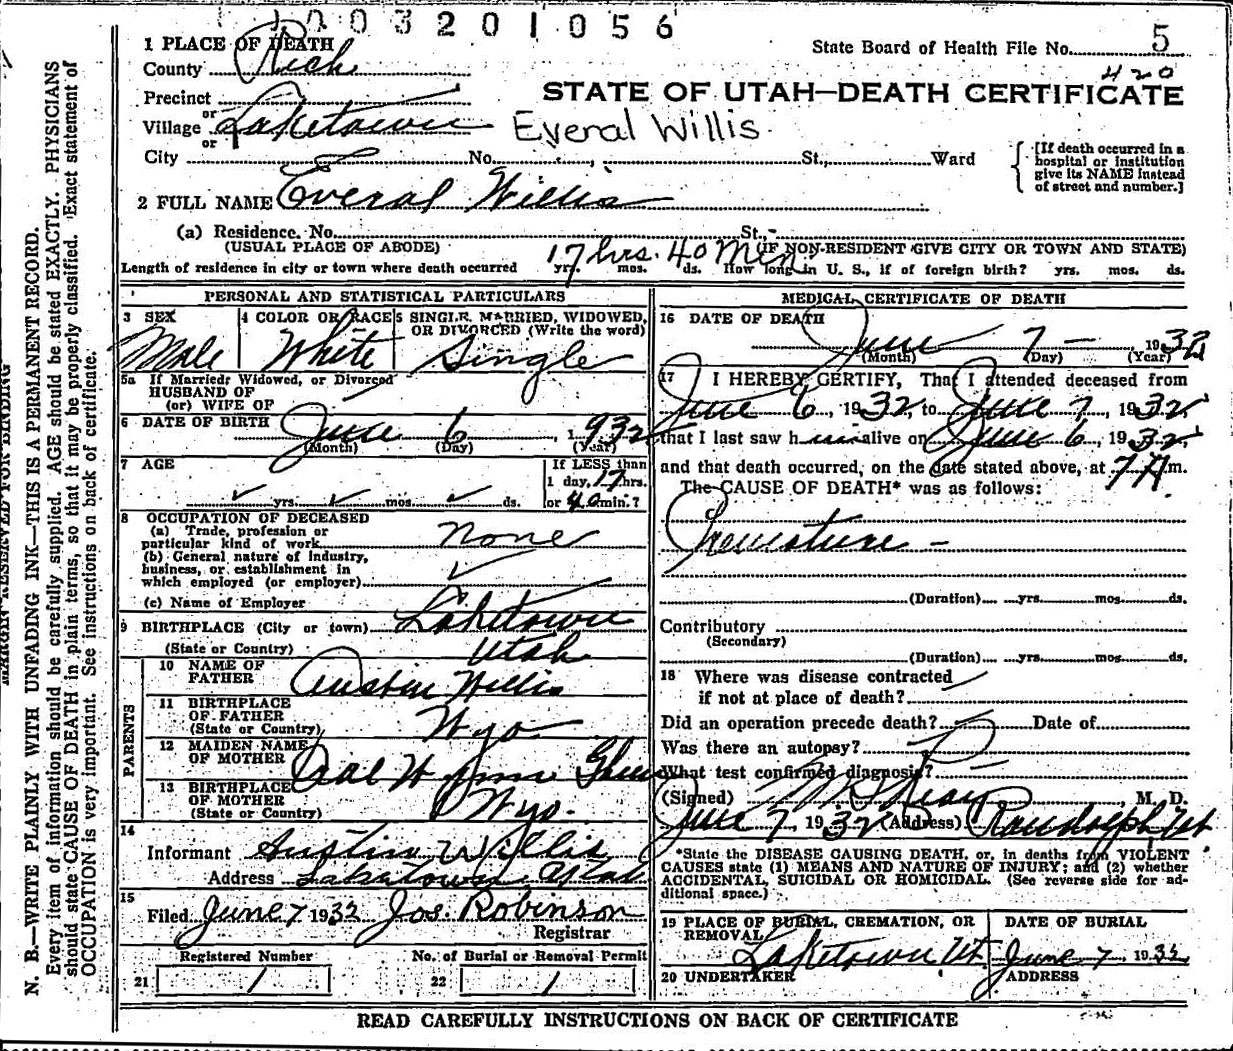 1003201056
1 PLACE OF DEATH
State Board of Health File No. 5
County Rich
420
Precinct
STATE OF UTAH—DEATH CERTIFICATE
or
Village Laketown Everal Willis
or
City No. St., Ward
[If death occurred in a
hospital or institution
give its NAME instead
of street and number.]
2 FULL NAME Everal Willis
(a) Residence. No. St.,
(USUAL PLACE OF ABODE) 17 hrs. 40 Min. (IF NON-RESIDENT GIVE CITY OR TOWN AND STATE)
Length of residence in city or town where death occurred yrs. mos. ds. How long in U. S., if of foreign birth? yrs. mos. ds.
PERSONAL AND STATISTICAL PARTICULARS
3 SEX
Male
4 COLOR OR RACE
White
5 SINGLE, MARRIED, WIDOWED,
OR DIVORCED (Write the word)
Single
5a If Married, Widowed, or Divorced
HUSBAND OF
(or) WIFE OF
6 DATE OF BIRTH June 6, 1932
(Month) (Day) (Year)
7 AGE
yrs. mos. ds.
If LESS than
1 day, 17 hrs.
or 40 min.?
8 OCCUPATION OF DECEASED
(a) Trade, profession or
particular kind of work None
(b) General nature of industry,
business, or establishment in
which employed (or employer)
(c) Name of Employer
9 BIRTHPLACE (City or town) Laketown
(State or Country) Utah
PARENTS
10 NAME OF
FATHER Austin Willis
11 BIRTHPLACE
OF FATHER
(State or Country) Wyo
12 MAIDEN NAME
OF MOTHER Oral
13 BIRTHPLACE
OF MOTHER
(State or Country) Wyo.
14
Informant Austin Willis
Address Laketown Utah
15
Filed June 7 1932 Jos. Robinson
Registrar
Registered Number
21 1
No. of Burial or Removal Permit
22 1
MEDICAL CERTIFICATE OF DEATH
16 DATE OF DEATH
June 7 - 1932
(Month) (Day) (Year)
17 I HEREBY CERTIFY, That I attended deceased from
June 6, 1932, to June 7, 1932
that I last saw h im alive on June 6, 1932,
and that death occurred, on the date stated above, at 7 A m.
The CAUSE OF DEATH* was as follows:
Premature -
(Duration) yrs. mos. ds.
Contributory
(Secondary)
(Duration) yrs. mos. ds.
18 Where was disease contracted
if not at place of death?
Did an operation precede death? Date of
Was there an autopsy?
What test confirmed diagnosis?
(Signed) M. D.
June 7, 1932 (Address) Randolph Ut
*State the DISEASE CAUSING DEATH, or, in deaths from VIOLENT
CAUSES state (1) MEANS AND NATURE OF INJURY; and (2) whether
ACCIDENTAL, SUICIDAL OR HOMICIDAL. (See reverse side for ad-
ditional space.)
19 PLACE OF BURIAL, CREMATION, OR
REMOVAL
Laketown Ut.
DATE OF BURIAL
June 7 1932
20 UNDERTAKER
ADDRESS
READ CAREFULLY INSTRUCTIONS ON BACK OF CERTIFICATE
MARGIN RESERVED FOR BINDING
N. B.—WRITE PLAINLY WITH UNFADING INK—THIS IS A PERMANENT RECORD.
Every item of information should be carefully supplied. AGE should be stated EXACTLY. PHYSICIANS
should state CAUSE OF DEATH in plain terms, so that it may be properly classified. Exact statement of
OCCUPATION is very important. See instructions on back of certificate.